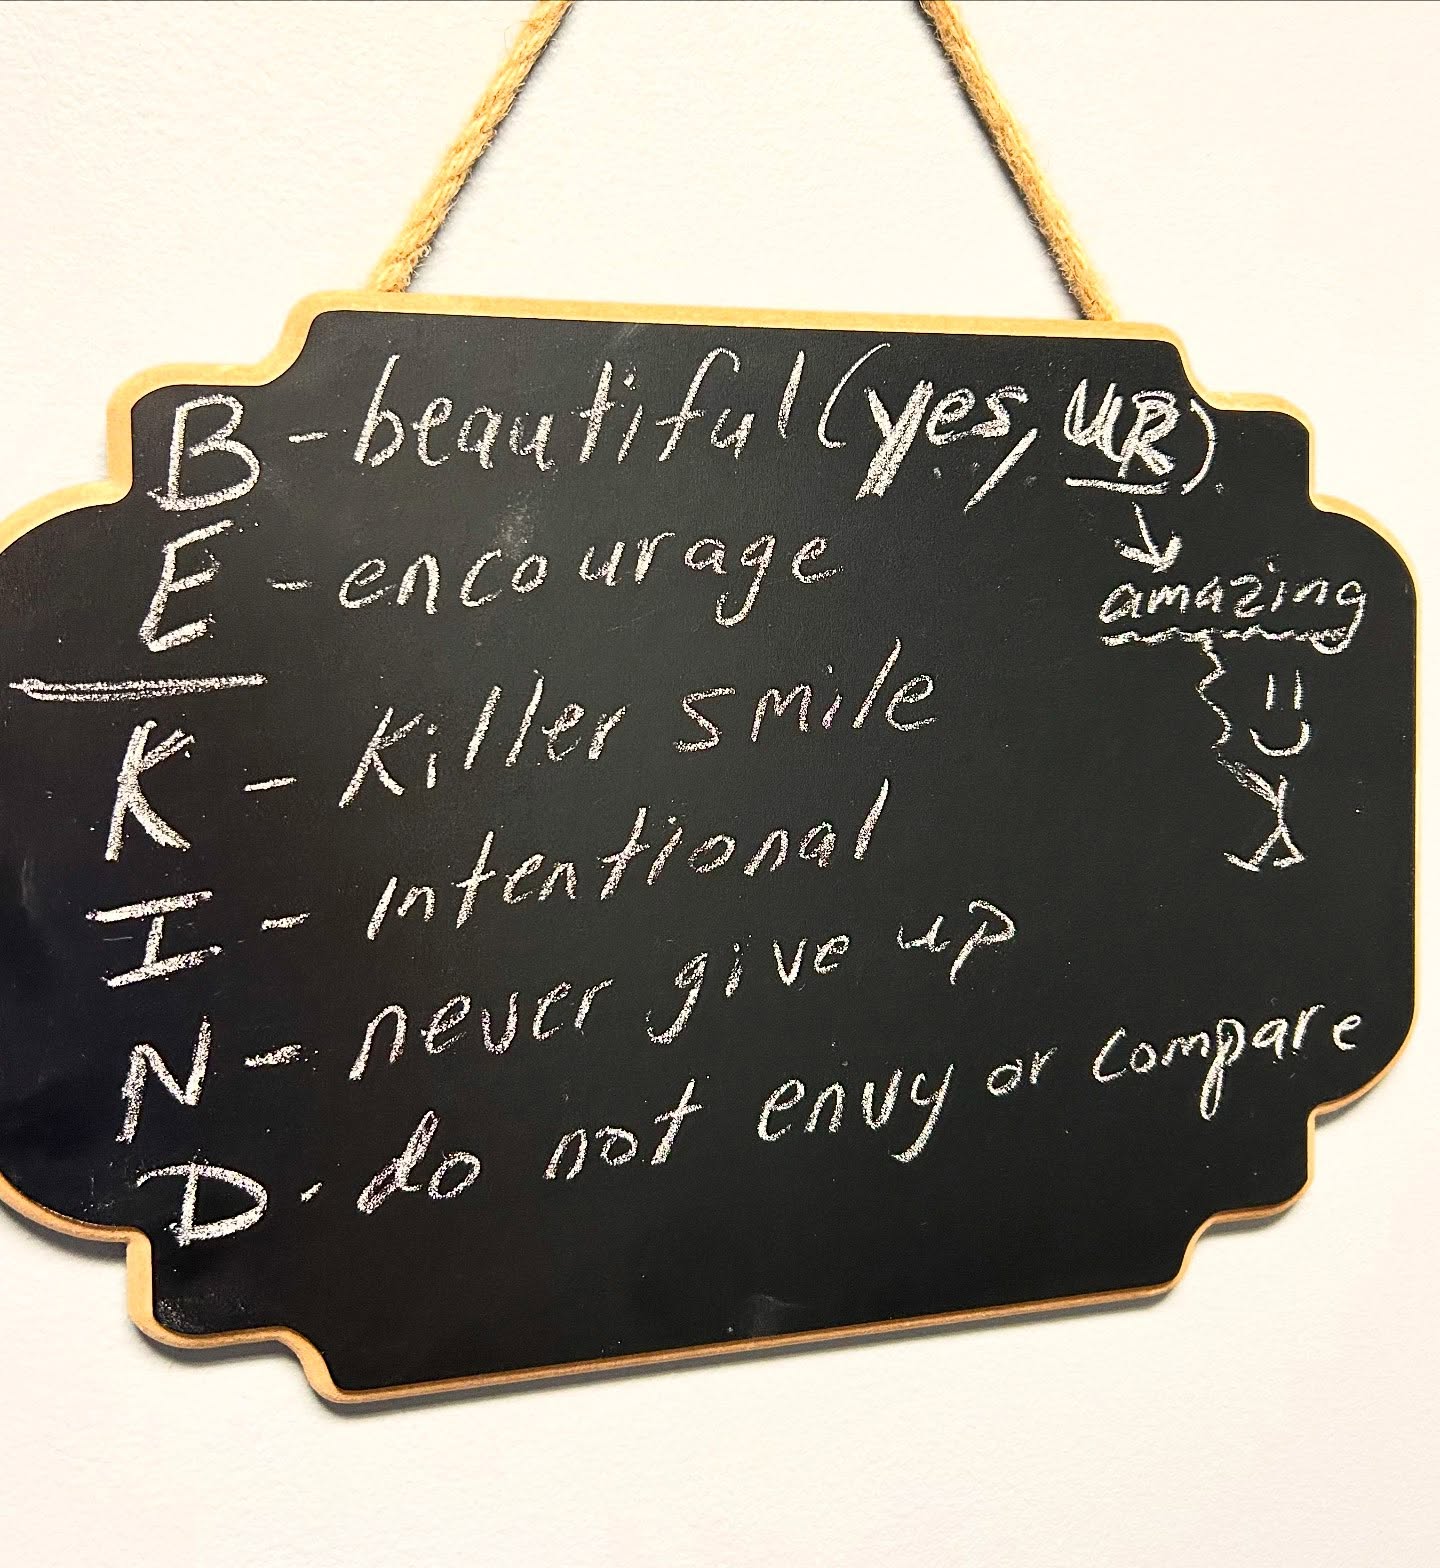 B - beautiful (yes, UR)
↓
amazing
E - encourage
K - Killer smile
=)
I - intentional
N - never give up
D - do not envy or compare